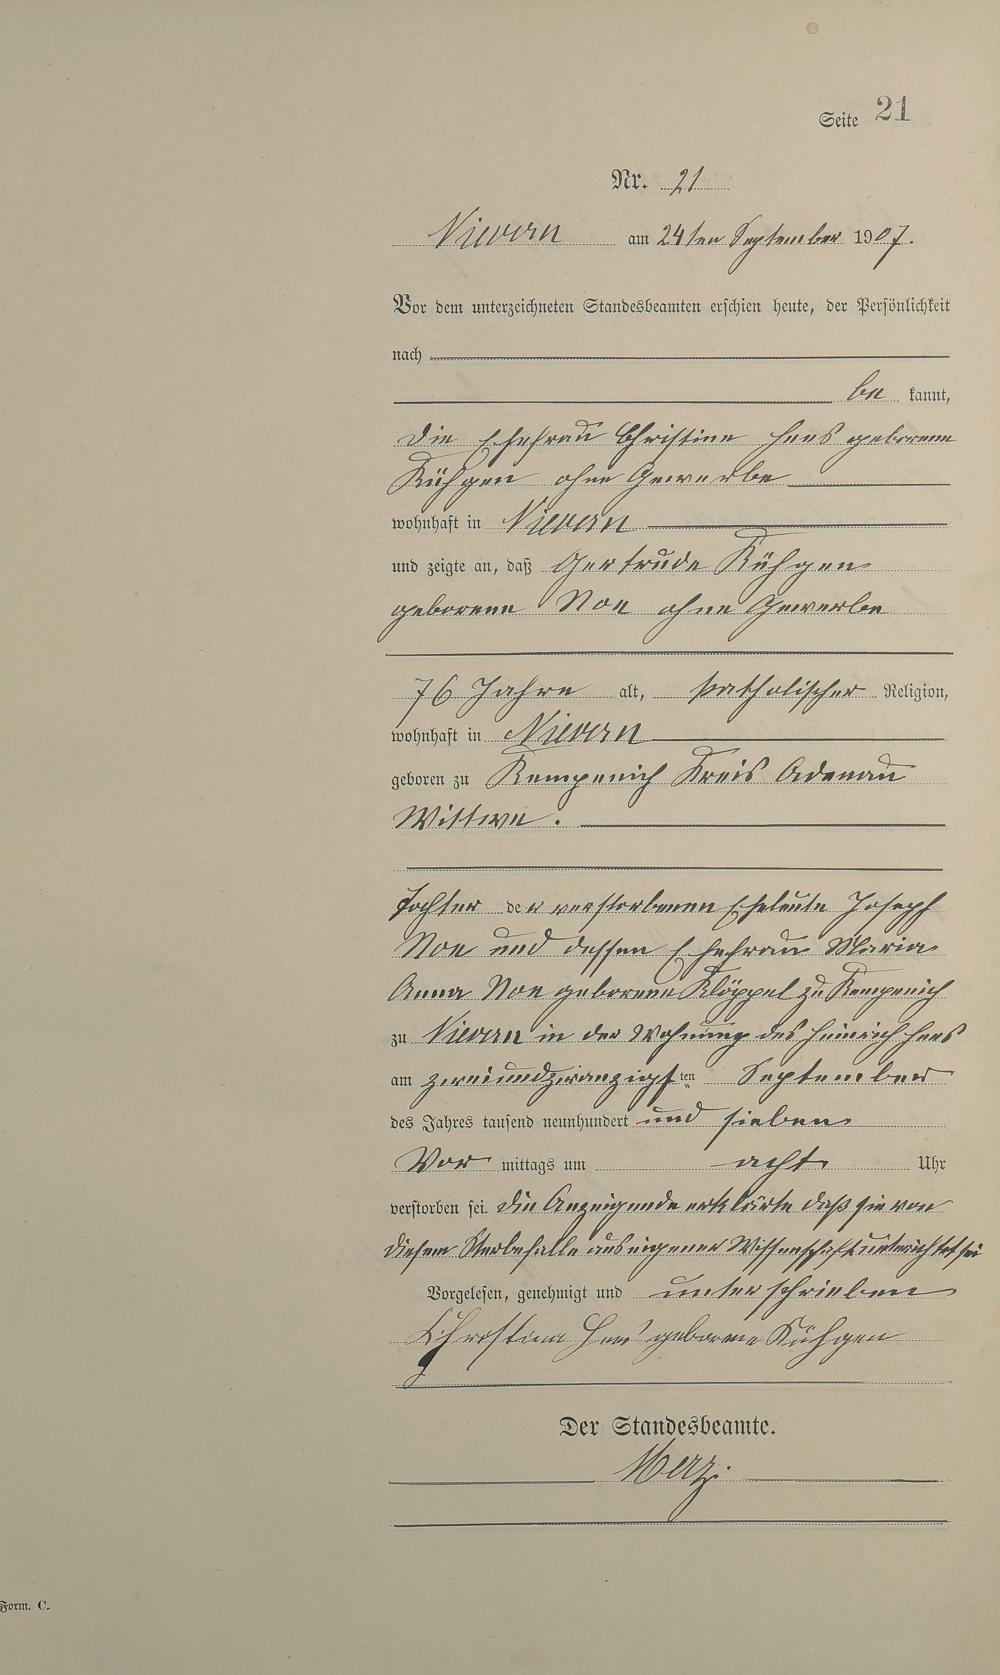 Seite 21
Nr. 21
Nievern am 24ten September 1907.
Vor dem unterzeichneten Standesbeamten erschien heute, der Persönlichkeit
nach
be kannt,
die Ehefrau Christine Heus geborene
Kühgen ohne Gewerbe
wohnhaft in Nievern
und zeigte an, daß Gertrude Kühgen
geborene Noe ohne Gewerbe
76 Jahre alt, katholischer Religion,
wohnhaft in Nievern
geboren zu Kempenich Kreis Adenau
Wittwe.
Tochter der verstorbenen Eheleute Joseph
Noe und dessen Ehefrau Maria
Anna Noe geborene Klöppel zu Kempenich
zu Nievern in der Wohnung des Heinrich Heus
am zweiundzwanzigsten September
des Jahres tausend neunhundert und sieben
Vor mittags um acht Uhr
verstorben sei. Die Anzeigende erklärte daß sie von
diesem Sterbefalle aus eigener Wissenschaft unterrichtet sei
Vorgelesen, genehmigt und unterschrieben
Christina Heus geborene Kühgen
Der Standesbeamte.
Merz.
Form. C.